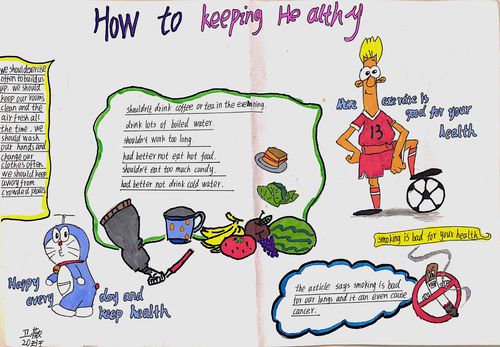 How to keeping Healthy
we should exercise
often to build us
up. we should
keep our rooms
clean and the
air fresh all
the time. we
should wash
our hands and
change our
clothes often
we should keep
away from
crowded places
shouldn't drink coffee or tea in the evening.
drink lots of boiled water.
shouldn't work too long.
had better not eat hot food.
shouldn't eat too much candy.
had better not drink cold water.
More exercise is
good for your
health
13
smoking is bad for your health
the article says smoking is bad
for our lungs and it can even cause
cancer.
Happy
every day and
keep health